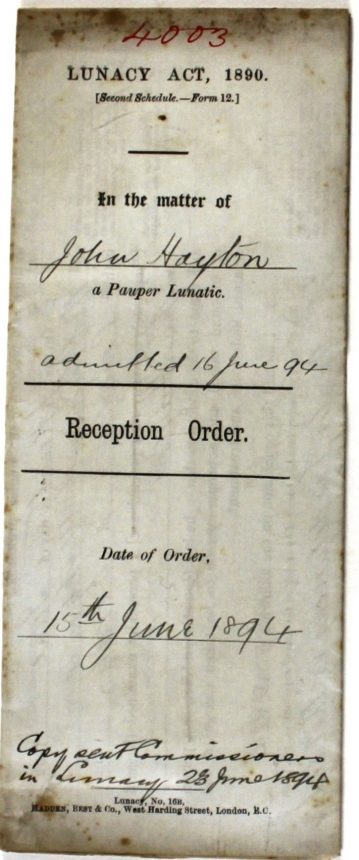 4003
LUNACY ACT, 1890.
[Second Schedule.—Form 12.]
In the matter of
John Hayton
a Pauper Lunatic.
admitted 16 June 94
Reception Order.
Date of Order,
15th June 1894
Copy sent Commissioners
in Lunacy 23 June 1894
Lunacy, No. 16B,
HADDEN, BEST & Co., West Harding Street, London, E.C.